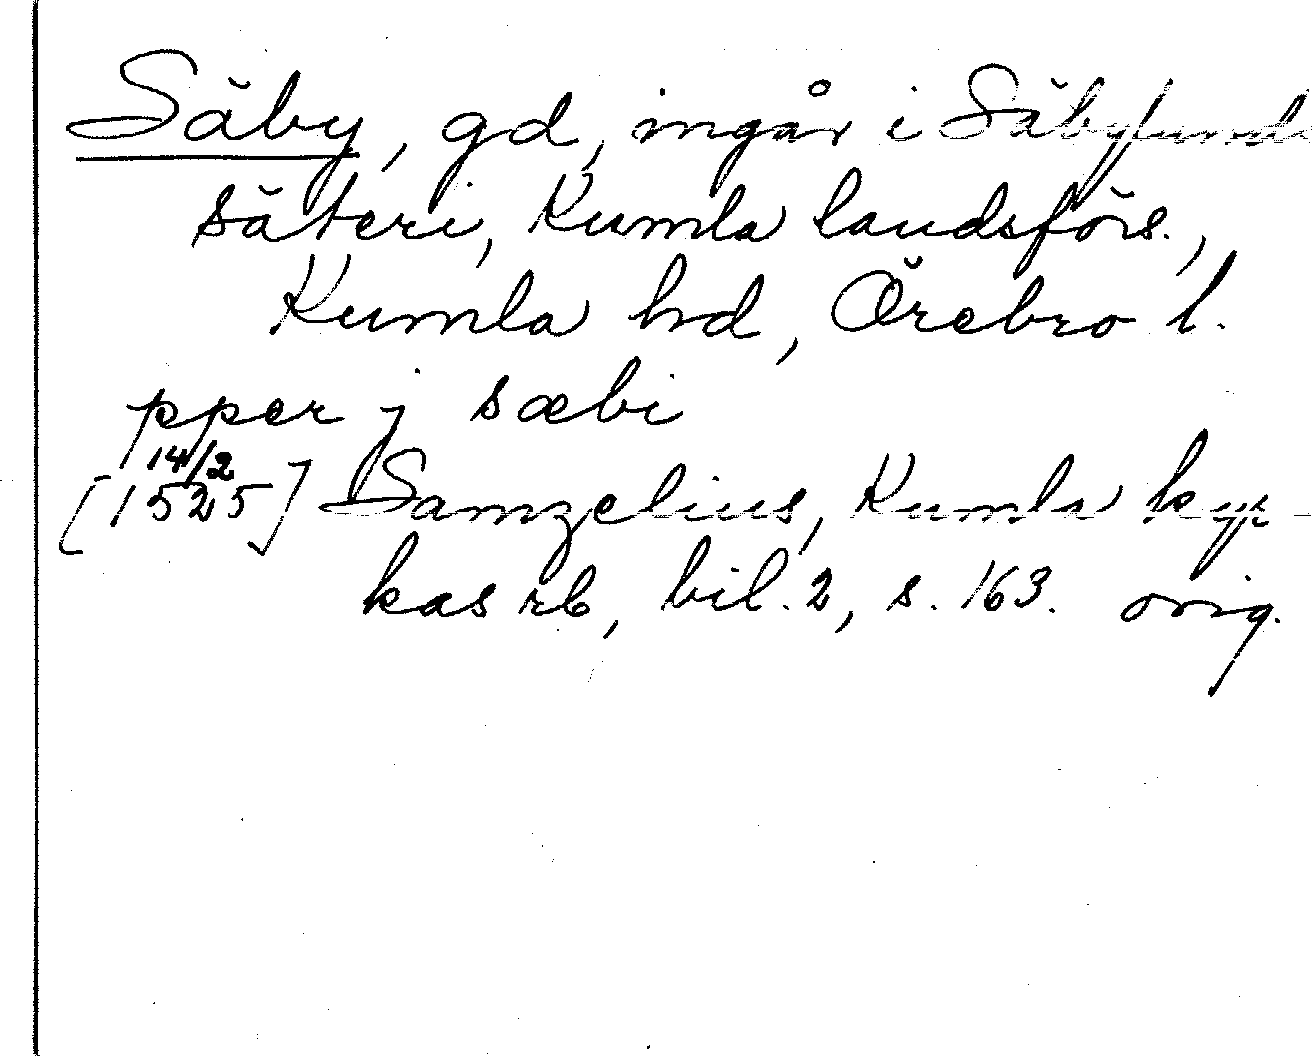 Säby, gd, ingår i Säbylunds
säteri, Kumla landsförs.,
Kumla hd, Örebro l.
pper j sæbi
14/2
[1525] Samzelius, Kumla kyr-
kas rb, bil. 2, s. 163. orig.